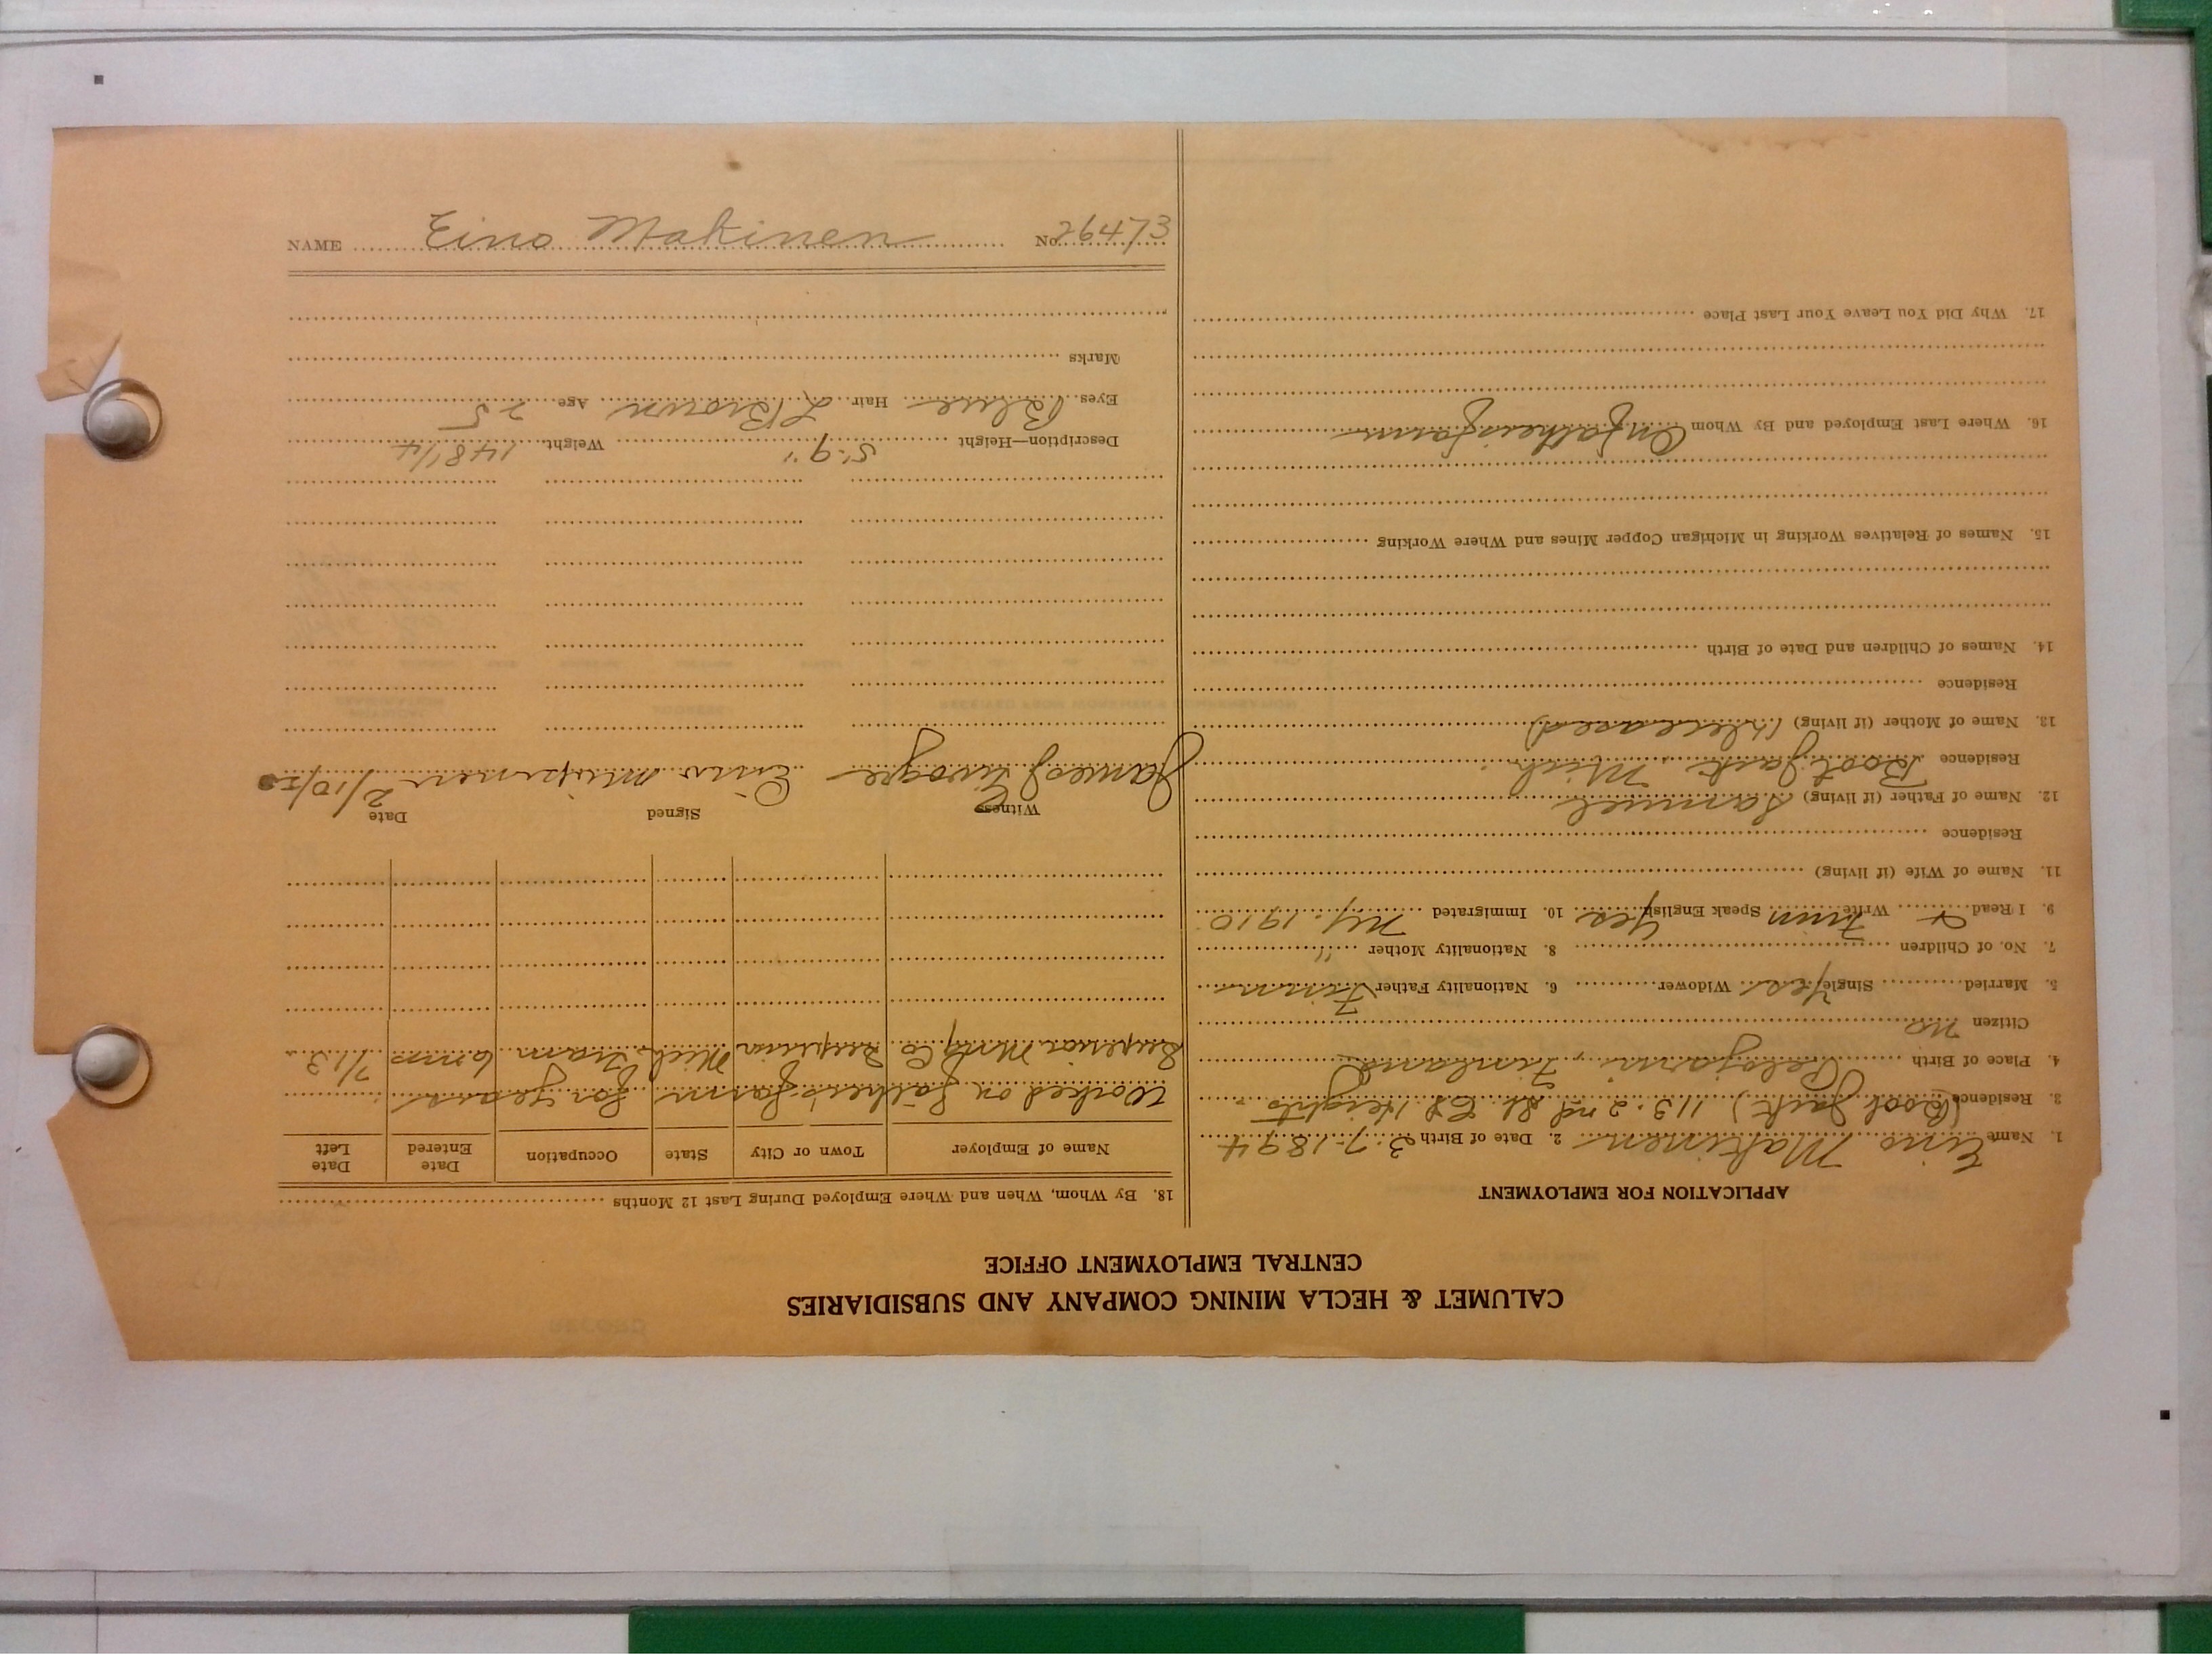 CALUMET & HECLA MINING COMPANY AND SUBSIDIARIES
CENTRAL EMPLOYMENT OFFICE
APPLICATION FOR EMPLOYMENT
1. Name Eino Makinen 2. Date of Birth 3-7-1894
3. Residence (Boot Jack) 113-2nd St. Heights
4. Place of Birth Finland
Citizen no
5. Married Single yes Widower 6. Nationality Father Finn
7. No. of Children 8. Nationality Mother "
9. I Read Write Finn Speak English yes 10. Immigrated 1910
11. Name of Wife (if living)
Residence
12. Name of Father (if living) Samuel
Residence Boot Jack, Mich.
13. Name of Mother (if living) (deceased)
Residence
14. Names of Children and Date of Birth
15. Names of Relatives Working in Michigan Copper Mines and Where Working
16. Where Last Employed and By Whom On fathers farm
17. Why Did You Leave Your Last Place
18. By Whom, When and Where Employed During Last 12 Months
Name of Employer Town or City State Occupation Date Entered Date Left
Worked on father's farm for years
Superior Mng Co. Superior Mich. Tram 6 mos 7/13
Witness Signed Date
James Eino 2/10/20
Description—Height 5'-9" Weight 148 1/4
Eyes Blue Hair L Brown Age 25
Marks
NAME Eino Makinen No. 26473